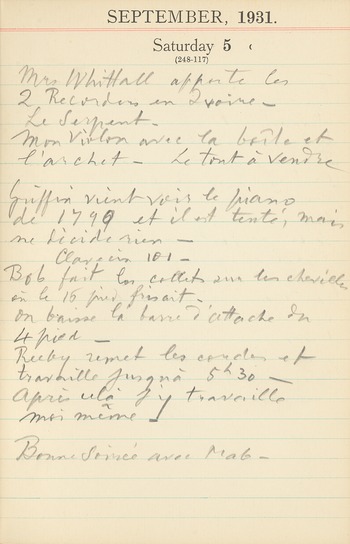 SEPTEMBER, 1931.
Saturday 5
(248-117)
Mrs Whittall apporte les
2 Recorders en Ivoire —
Le Serpent —
Mon Violon avec la boîte et
l'archet — Le tout à vendre
Griffin vient voir le piano
de 1799 et il est tenté, mais
ne décide rien —
Clavecin 101 —
Bob fait les collets sur les chevilles
où le 16 pied frisait —
on baisse la barre d'attache du
4 pied —
Reeby remet les cordes et
travaille jusqu'à 5h30 —
Après celà j'y travaille
moi même —
Bonne Soirée avec Mab —